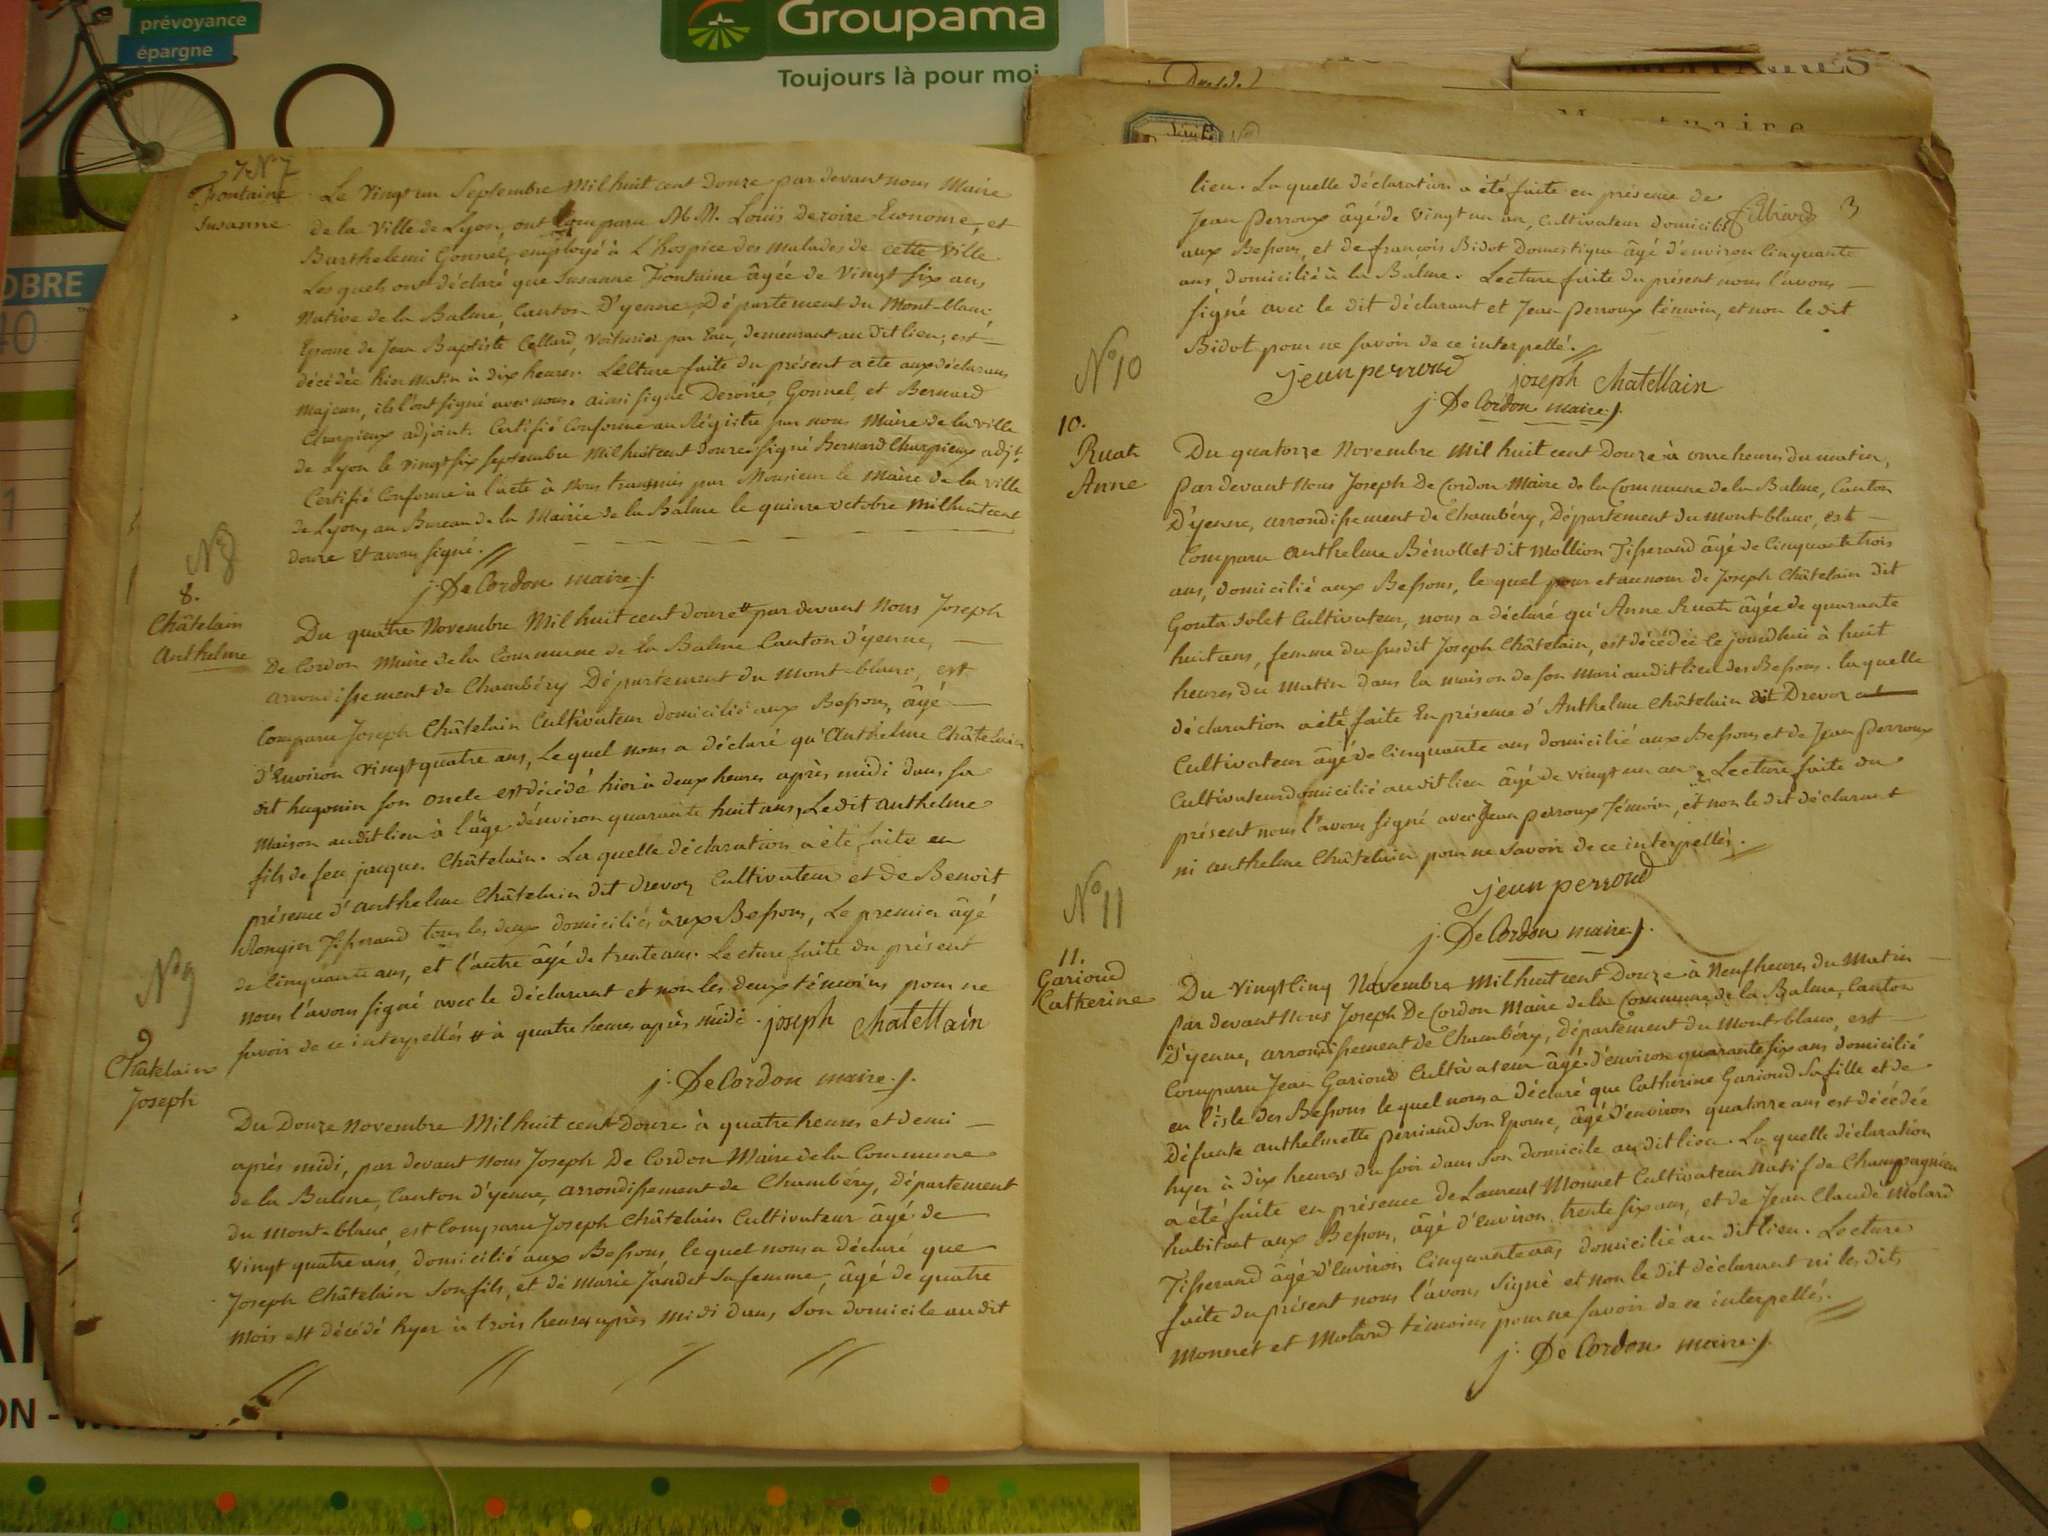 prévoyance
épargne
Groupama
Toujours là pour moi
OBRE
40
7 N° 7
Fontaine
Susanne
Le vingt un Septembre Mil huit cent Douze par devant nous Maire
de la Ville de Lyon, ont Comparu M.M. Louis Deroire Econome, et
Barthelemi Gonnel, employé à L'hospice des malades de cette Ville
Lesquels ont déclaré que Susanne Fontaine âgée de Vingt six ans
Native de la Balme, Canton D'yenne, Département du Mont-blanc
Epouse de Jean Baptiste Cellard, Voiturier par Eau, demeurant au dit lieu, est
décédée hier matin à dix heures. Lecture faite du présent acte aux déclarans
majeurs, ils l'ont signé avec nous. ainsi signé Deroire, Gonnel, et Bernard
Charpieux adjoint. Certifié Conforme au Régistre par nous Maire de la ville
de Lyon le vingt six septembre Mil huit cent douze signé Bernard Charpieux adjt.
Certifié Conforme à l'acte à Nous transmis par Monsieur le Maire de la ville
de Lyon, au Bureau de la Mairie de la Balme le quinze octobre Mil huit cent
douze Et avons signé.
j. De Cordon maire
N° 8
8.
Châtelain
Anthelme
Du quatre Novembre Mil huit cent douze # par devant Nous Joseph
De Cordon Maire de la Commune de la Balme Canton d'yenne,
arrondissement de Chambéry Département du Mont-blanc, est
Comparu Joseph Châtelain Cultivateur domicilié aux Bessons, âgé
d'Environ vingt quatre ans, Lequel nous a déclaré qu'Anthelme Châtelain
dit hugonin son oncle est décédé hier à deux heures après midi dans sa
Maison au dit lieu à l'âge d'environ quarante huit ans, Le dit Anthelme
fils de feu jacques Châtelain. La quelle déclaration a été faite en
présence d'anthelme Châtelain dit drevoz Cultivateur et de Benoit
Rongier Tisserand tous les deux domiciliés aux Bessons, Le premier âgé
de Cinquante ans, et l'autre âgé de trente ans. Lecture faite du présent
nous l'avons signé avec le déclarant et non les deux témoins pour ne
savoir de ce interpellés # à quatre heures après midi. joseph Chatellain
j. De Cordon maire
N° 9
9
Châtelain
Joseph
Du Douze Novembre Mil huit cent Douze à quatre heures et demi
après midi, par devant Nous Joseph De Cordon Maire de la Commune
de la Balme, Canton d'yenne, arrondissement de Chambéry, département
du Mont-blanc, est Comparu Joseph Châtelain Cultivateur âgé de
Vingt quatre ans, domicilié aux Bessons, lequel nous a déclaré que
Joseph Châtelain Son fils, et de marie Jandet sa femme, âgé de quatre
mois est décédé hyer à trois heures après midi dans Son domicile au dit
lieu. La quelle déclaration a été faite en présence de
Jean Perroux âgé de Vingt un an, Cultivateur domicilié
3
aux Bessons, et de françois Bidot Domestique âgé d'environ Cinquante
ans domicilié à la Balme. Lecture faite du présent nous l'avons
signé avec le dit déclarant et Jean Perroux témoin, et non le dit
Bidot pour ne savoir de ce interpellé.
jean perroud joseph Chatellain
j. De Cordon maire
N° 10
10.
Ruah
Anne
Du quatorze Novembre Mil huit cent Douze à onze heures du matin,
par devant nous Joseph De Cordon Maire de la Commune de la Balme, Canton
D'yenne, arrondissement de Chambéry, Département du mont-blanc, est
Comparu Anthelme Bénollet dit Mollion Tisserand âgé de Cinquante trois
ans, domicilié aux Bessons, le quel pour et au nom de Joseph Châtelain dit
Cultivateur, nous a déclaré qu'Anne Ruah âgée de quarante
huit ans, femme du susdit Joseph Châtelain, est décédée Ce jourdhui à huit
heures du matin dans la maison de son mari au dit lieu des Bessons. la quelle
déclaration a été faite En présence d'Anthelme Châtelain dit Drevoz
Cultivateur âgé de Cinquante ans domicilié aux Bessons et de Jean Perroux
Cultivateur domicilié au dit lieu âgé de vingt un an. Lecture faite du
présent nous l'avons signé avec Jean Perroux témoin, et non le dit déclarant
ni anthelme Châtelain pour ne savoir de ce interpellés.
jean perroud
j. De Cordon maire
N° 11
11.
Garioud
Catherine
Du Vingt Cinq Novembre Mil huit cent Douze à Neuf heures du Matin
par devant Nous Joseph De Cordon Maire de la Commune de la Balme, Canton
D'yenne, arrondissement de Chambéry, département du Mont-blanc, est
Comparu Jean Garioud Cultivateur âgé d'environ quarante six ans domicilié
en l'isle des Bessons lequel nous a déclaré que Catherine Garioud Sa fille et de
Défunte anthelmette perriand Son Epouse, âgée d'environ quatorze ans est décédée
hyer à dix heures du soir dans Son domicile au dit lieu. La quelle déclaration
a été faite en présence de Laurent Monnet Cultivateur Natif de Champagnieu
habitant aux Bessons, âgé d'environ trente six ans, et de Jean Claude Molard
Tisserand âgé d'environ Cinquante ans domicilié au dit lieu. Lecture
faite du présent nous l'avons Signé et non le dit déclarant ni les dits
Monnet et Molard témoins pour ne savoir de ce interpellés.
j. De Cordon maire